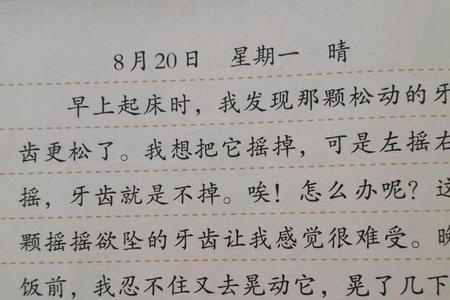 8月20日 星期一 晴
早上起床时，我发现那颗松动的牙
齿更松了。我想把它摇掉，可是左摇右
摇，牙齿就是不掉。唉！怎么办呢？这
颗摇摇欲坠的牙齿让我感觉很难受。晚
饭前，我忍不住又去晃动它，晃了几下